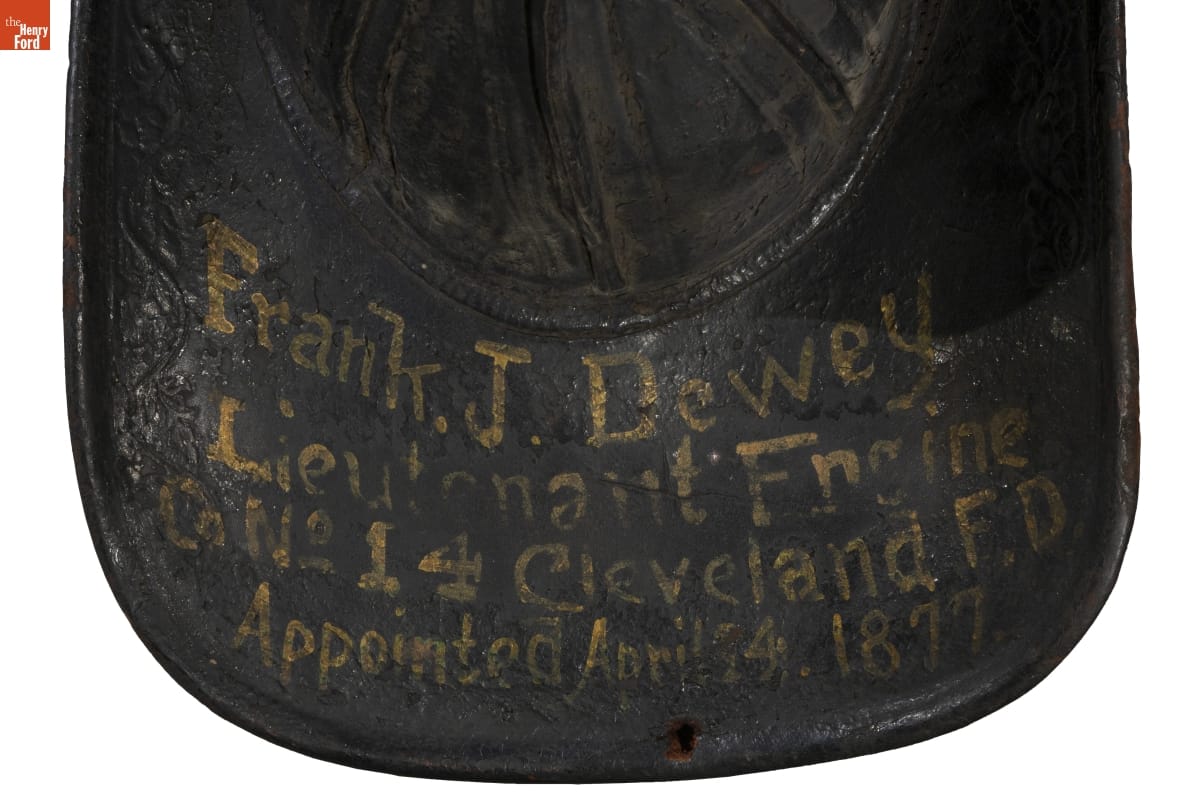 the
Henry
Ford
Frank. J. Dewey
Lieutenant Engine
Co No 14 Cleveland F.D.
Appointed April 24. 1877.